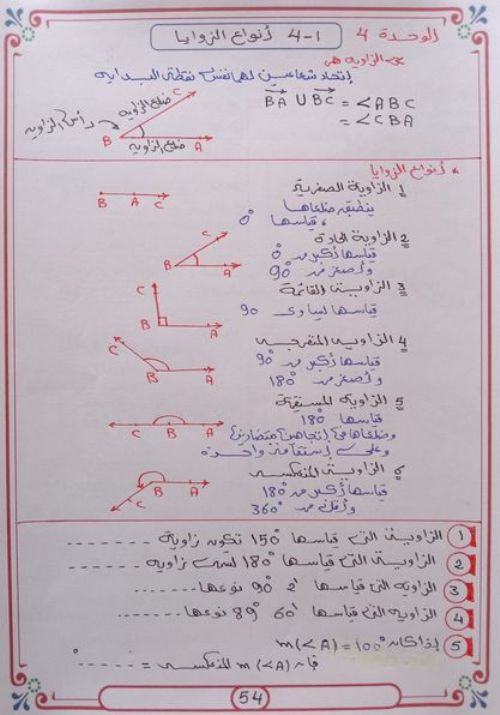 الوحدة 4
4-1 أنواع الزوايا
الزاوية هى
إتحاد شعاعين لهما نفس نقطة البداية
BA U BC = <ABC
= <CBA
ضلع الزاوية
رأس الزاوية
ضلع الزاوية
C
B
A
أنواع الزوايا
1 الزاوية الصفرية
ينطبق ضلعاها
قياسها 0°
B A C
2 الزاوية الحادة
قياسها أكبر من 0°
وأصغر من 90°
C
B A
3 الزاوية القائمة
قياسها يساوى 90
C
B A
4 الزاوية المنفرجة
قياسها أكبر من 90°
وأصغر من 180°
C
B A
5 الزاوية المستقيمة
قياسها 180°
وضلعاها فى إتجاهين متضادين
وعلى إستقامة واحدة
C B A
6 الزاوية المنعكسة
قياسها أكبر من 180°
وأقل من 360°
B A
C
1 الزاوية التى قياسها 150° تكون زاوية --------
2 الزاوية التى قياسها 180° تسمى زاوية --------
3 الزاوية التى قياسها 2' 90° نوعها........
4 الزاوية التى قياسها 60' 89° نوعها........
5 إذا كان m(<A) = 100°
فإن m(<A) المنعكسة = -----°
54